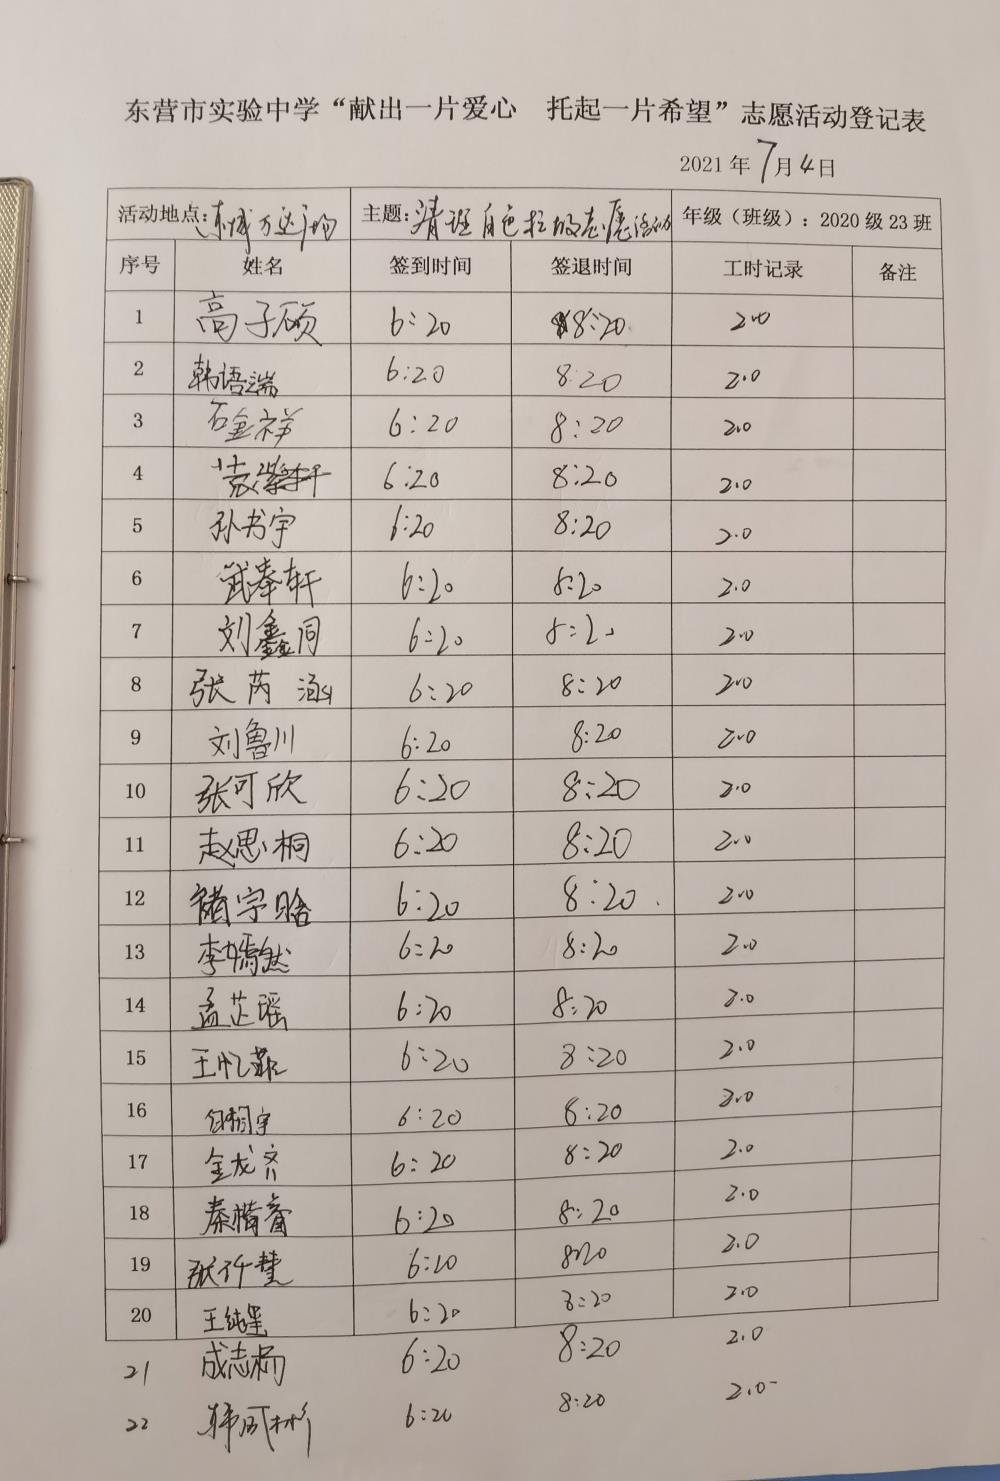 东营市实验中学“献出一片爱心 托起一片希望”志愿活动登记表
2021年7月4日
活动地点:东城万达广场 主题:清理白色垃圾志愿活动 年级（班级）：2020级23班
序号 姓名 签到时间 签退时间 工时记录 备注
1 高子硕 6:20 8:20 2.0
2 韩语端 6:20 8:20 2.0
3 石金祥 6:20 8:20 2.0
4 袁紫轩 6:20 8:20 2.0
5 孙书宇 6:20 8:20 2.0
6 武奉轩 6:20 8:20 2.0
7 刘鑫同 6:20 8:20 2.0
8 张芮涵 6:20 8:20 2.0
9 刘鲁川 6:20 8:20 2.0
10 张可欣 6:20 8:20 2.0
11 赵思桐 6:20 8:20 2.0
12 褚宇晗 6:20 8:20 2.0
13 李嫣然 6:20 8:20 2.0
14 孟芷瑶 6:20 8:20 2.0
15 王忆菲 6:20 8:20 2.0
16 6:20 8:20 2.0
17 金龙齐 6:20 8:20 2.0
18 秦楷睿 6:20 8:20 2.0
19 张仟慧 6:20 8:20 2.0
20 王纯星 6:20 8:20 2.0
21 成志杨 6:20 8:20 2.0
22 6:20 8:20 2.0